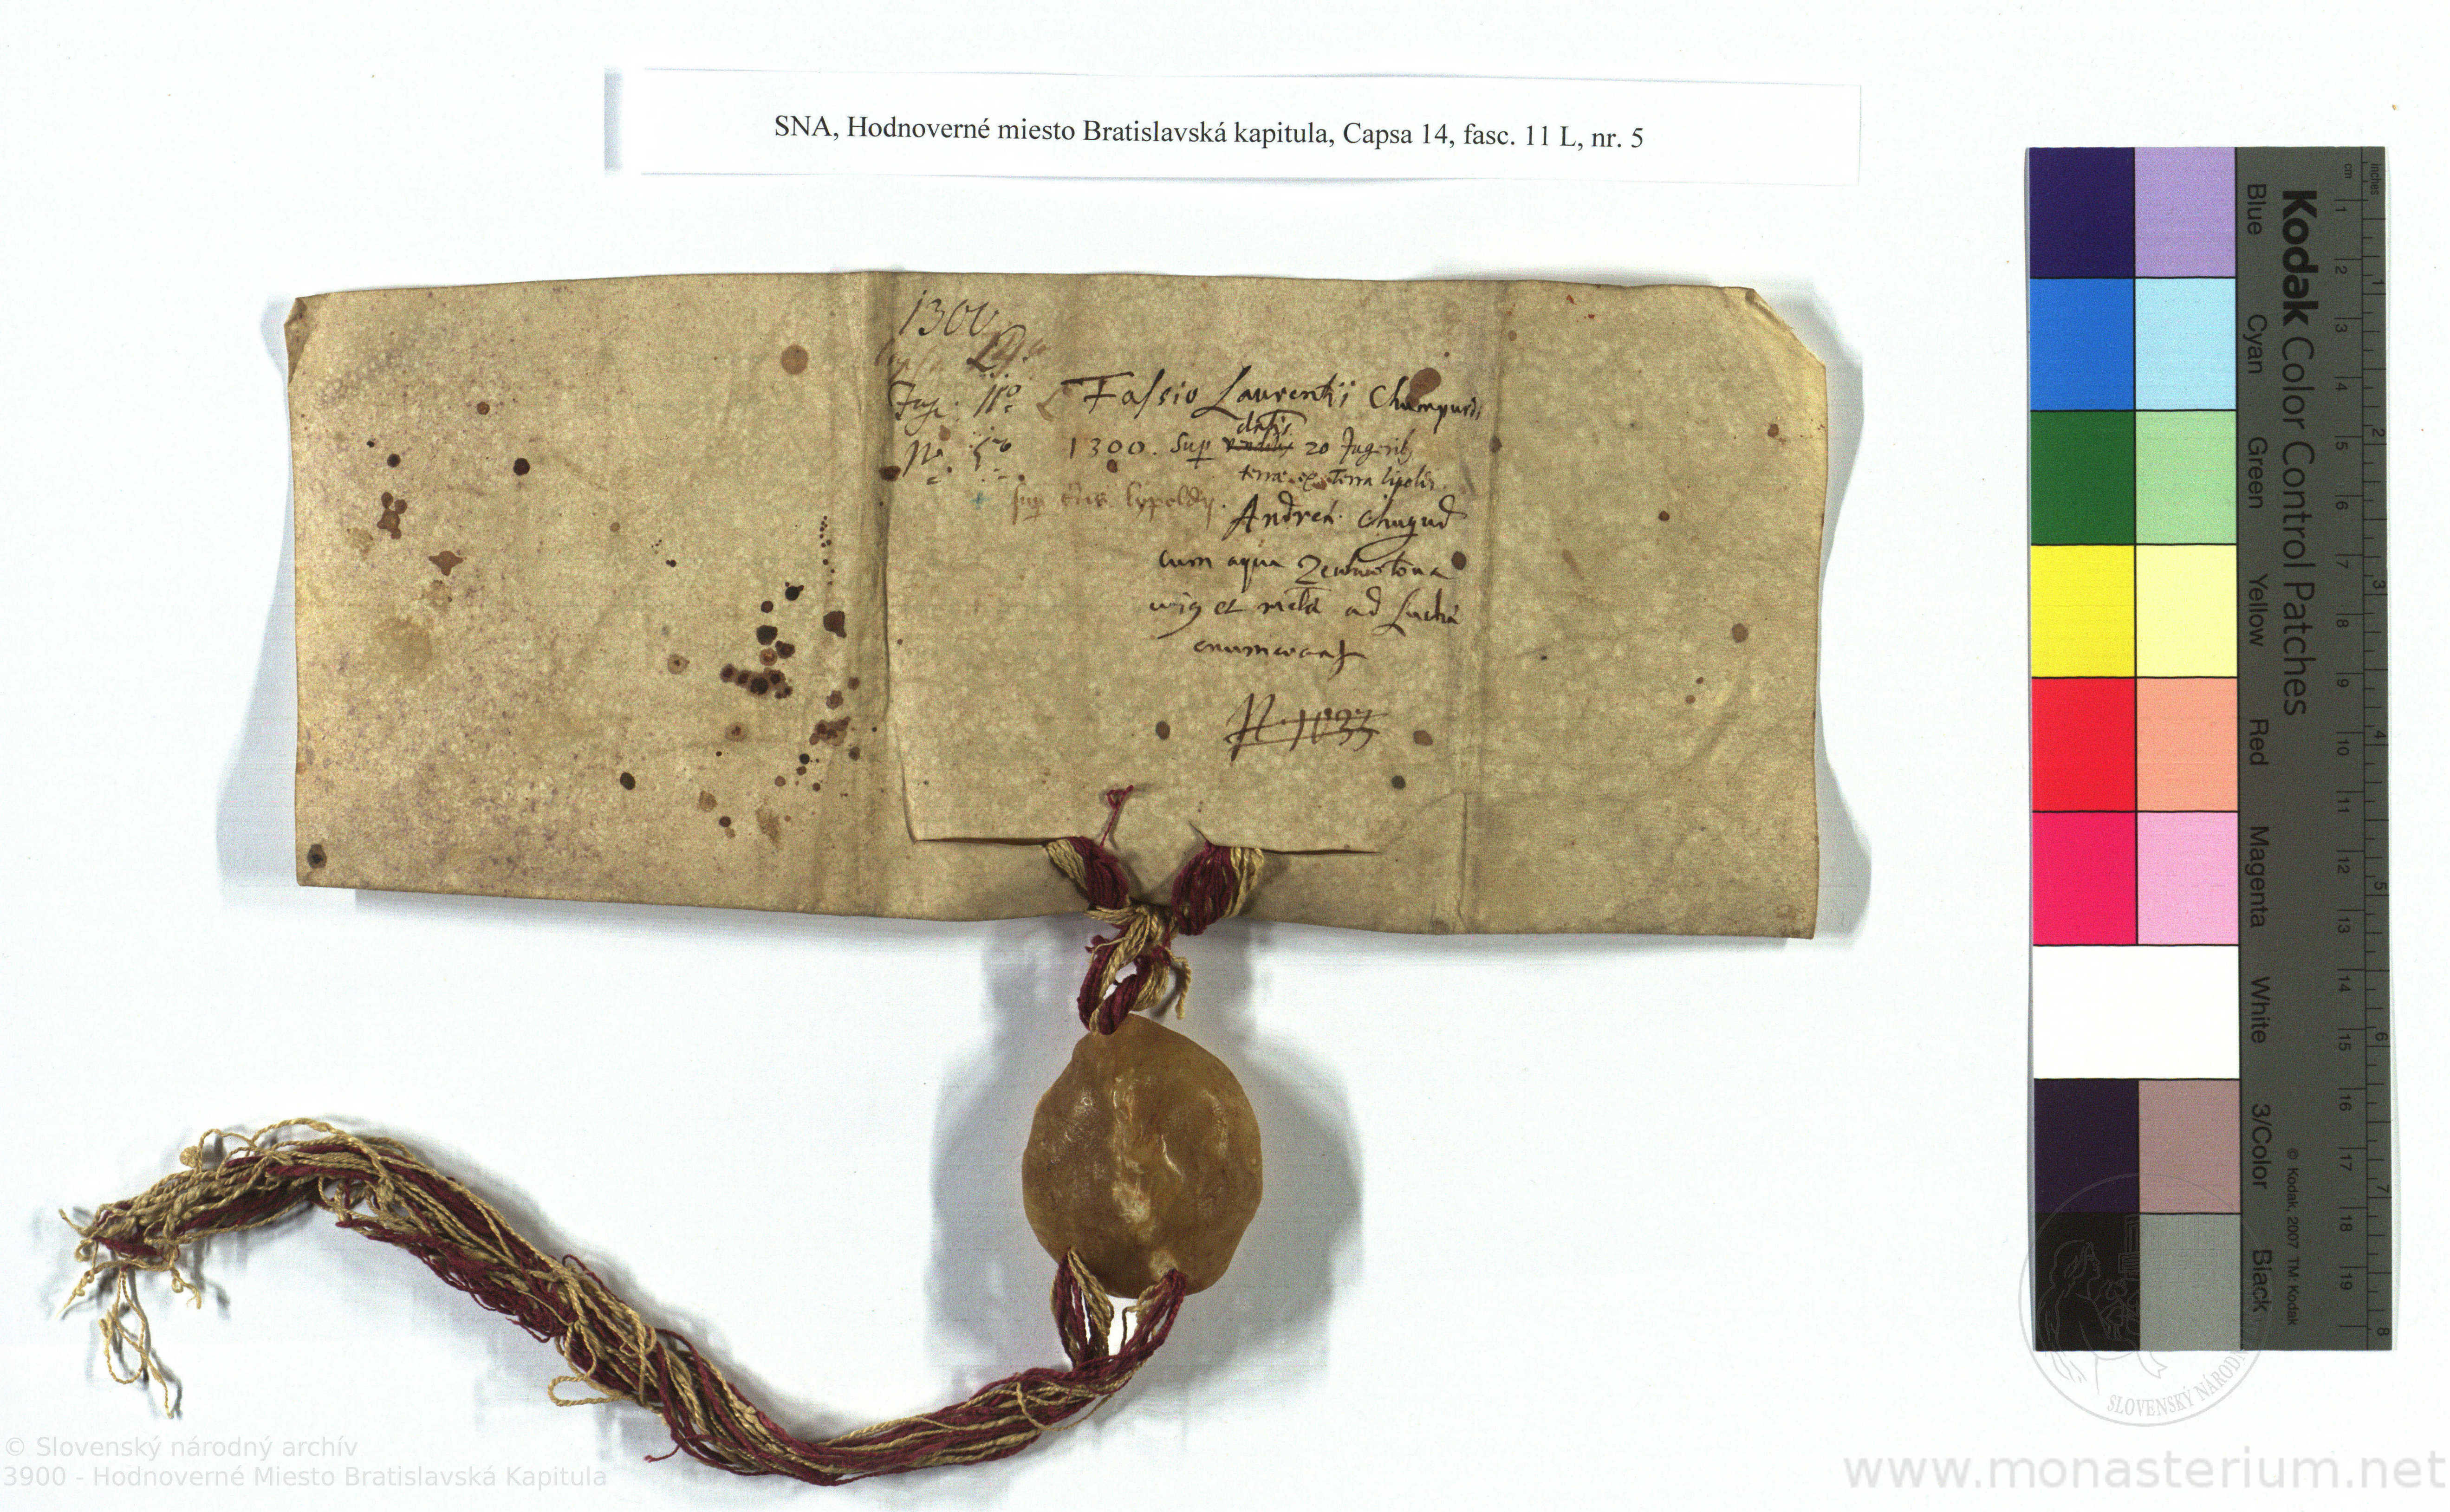 SNA, Hodnoverné miesto Bratislavská kapitula, Capsa 14, fasc. 11 L, nr. 5
1300
Capsa 14.
Fasc. 11º Fassio Laurentij
Nº. 5º 1300. Sup datis 20 Jugerib
terrae ex terra lipolt
Andreae Chugud
cum aqua
et meta ad
N. 1033
Kodak Color Control Patches
Blue Cyan Green Yellow Red Magenta White 3/Color Black
© Kodak, 2007 TM: Kodak
inches 1 2 3 4 5 6 7 8
cm 1 2 3 4 5 6 7 8 9 10 11 12 13 14 15 16 17 18 19
SLOVENSKÝ NÁRODN
© Slovenský národný archív
3900 - Hodnoverné Miesto Bratislavská Kapitula
www.monasterium.net